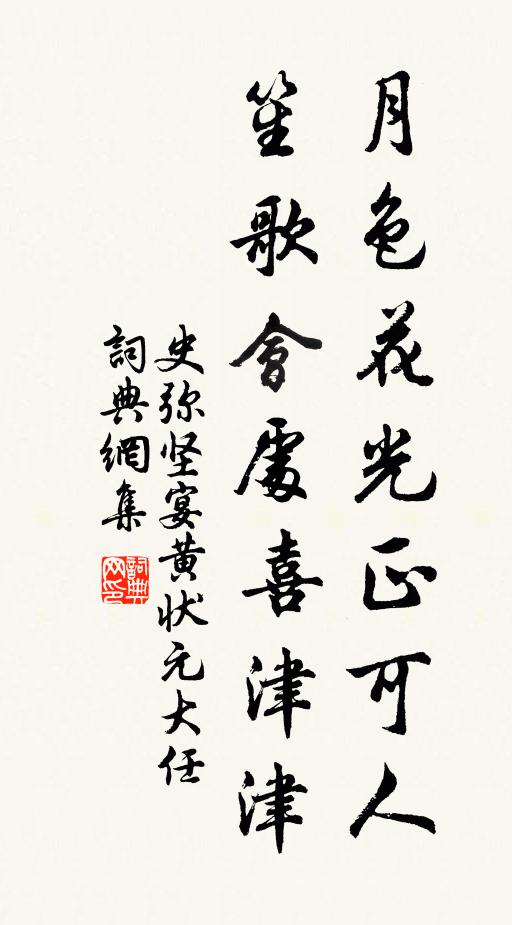 月色花光正可人
笙歌會處喜津津
史弥坚宴黄状元大任
詞典網集
詞典网印